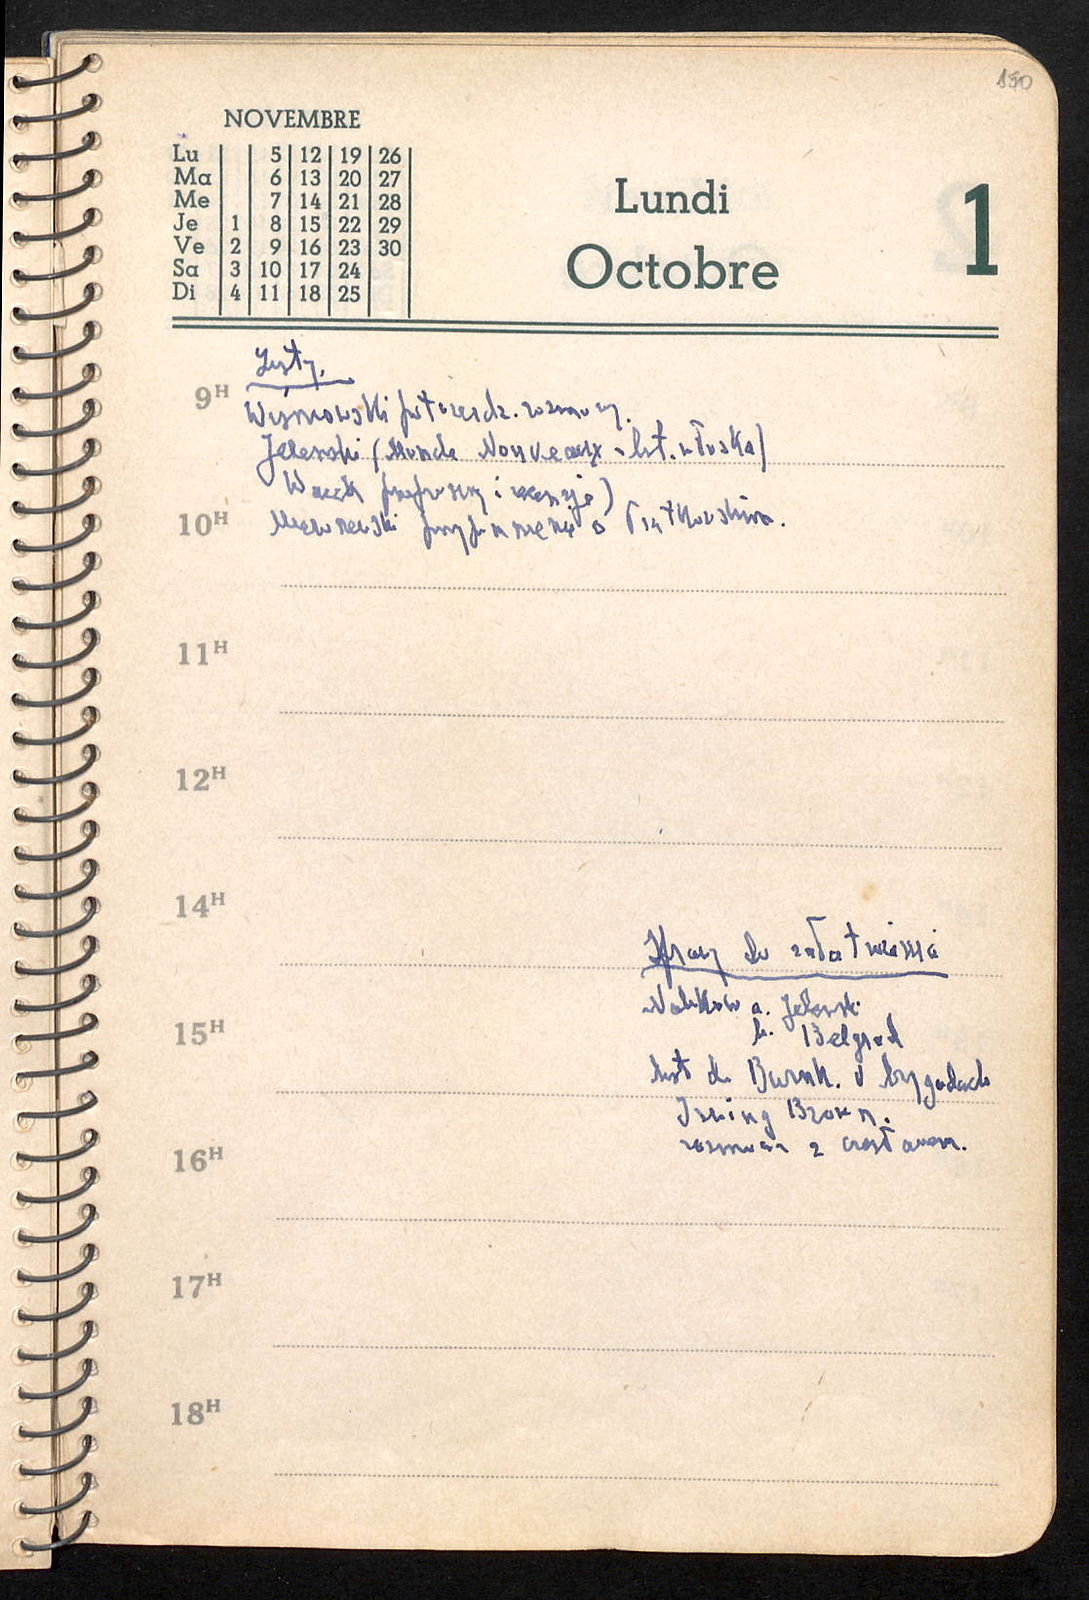 150
NOVEMBRE
Lu 5 12 19 26
Ma 6 13 20 27
Me 7 14 21 28
Je 1 8 15 22 29
Ve 2 9 16 23 30
Sa 3 10 17 24
Di 4 11 18 25
Lundi
Octobre
1
Listy.
9H
Wyszkowski potwierdz. rozmowy.
Jeleński (Monde Nouveaux - lit. włoska)
Wacek i recenzje)
10H
Mieroszewski przypomnienie o
11H
12H
14H
Sprawy do załatwienia
a. Jeleński
15H
b. Belgrad
list do Burnh. o brygadach
Irving Brown.
16H
rozmowa z
17H
18H